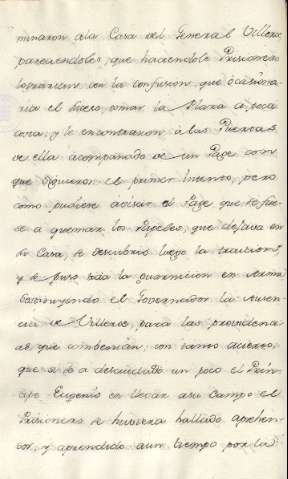 minaron ala Casa del General Villeroi
pareciendoles, que haciendole Prisionero
lograrian con la confusion, que ocasiona
ria el suceso, tomar la Plaza á poca
costa, y le encontraron á las Puertas
de ella acompañado de un Page con
que siguieron el primer intento, pero
como pudiese avisar el Page que se fue
se a quemar los Papeles, que dejava en
la Casa, se descubrio luego la traicion,
y se puso toda la guarnicion en Arma
el Governador la Ausen
cia de Villeroi, para las providencias
que con tanto acierto,
que si se a descuidado un poco el Prin
cipe Eugenio en llevar asu Campo el
Prisionero se huviera hallado aprehen
sor, y aprendido aun tiempo por la